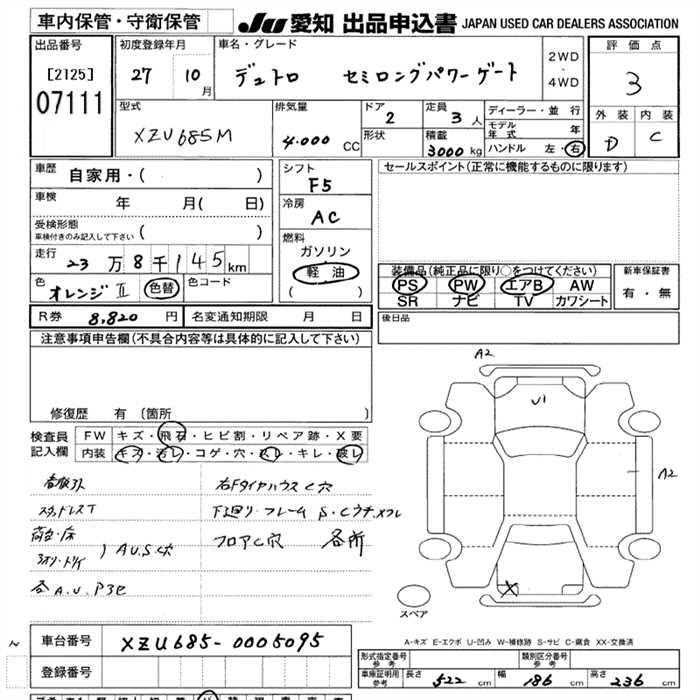 車内保管・守衛保管 JU 愛知 出品申込書 JAPAN USED CAR DEALERS ASSOCIATION
出品番号 [2125] 07111
初度登録年月 27 10月
車名・グレード デュトロ セミロングパワーゲート
2WD・4WD
評価点 3
外装 D 内装 C
型式 XZU685M
排気量 4.000 CC
ドア 2
形状
定員 3人
積載 3000 kg
ディーラー・並行
モデル年式 年
ハンドル 左・右
車歴 自家用・( )
車検 年 月( 日)
受検形態 車検付きのみ記入して下さい ( )
走行 23万8千145km
色 オレンジII 色替 色コード
シフト F5
冷房 AC
燃料 ガソリン 軽油 ( )
セールスポイント(正常に機能するものに限ります)
装備品(純正品に限り○をつけてください)
PS PW エアB AW
SR ナビ TV カワシート
新車保証書 有・無
R券 8,820円 名変通知期限 月 日
後日品
注意事項申告欄(不具合内容等は具体的に記入して下さい)
修復歴 有 〔箇所 〕
検査員記入欄
FW キズ・飛石・ヒビ割・リペア跡・X要
内装 キズ・汚レ・コゲ・穴・スレ・キレ・破レ
右FタイヤハウスC穴
下廻り・フレーム S・Cウチ・メクレ
フロアC穴 各所
A.U.S.C大
A2
U1
A2
X
スペア
A-キズ E-エクボ U-凹み W-補修跡 S-サビ C-腐食 XX-交換済
車台番号 XZU685-0005095
登録番号
形式指定番号 参考 類別区分番号 参考
車庫証明用 参考 長さ 522 cm 幅 186 cm 高さ 236 cm